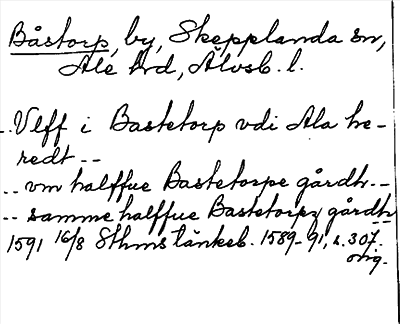 Båstorp, by, Skepplanda sn,
Ale hd, Älvsb. l.
.. Vlff i Bastetorp vdi Ala he-
redt --
.. vm halffue Bastetorpe gårdh --
-- samme halffue Bastetorpz gårdh
1591 16/8 Sthms tänkeb. 1589-91, s. 307.
orig.